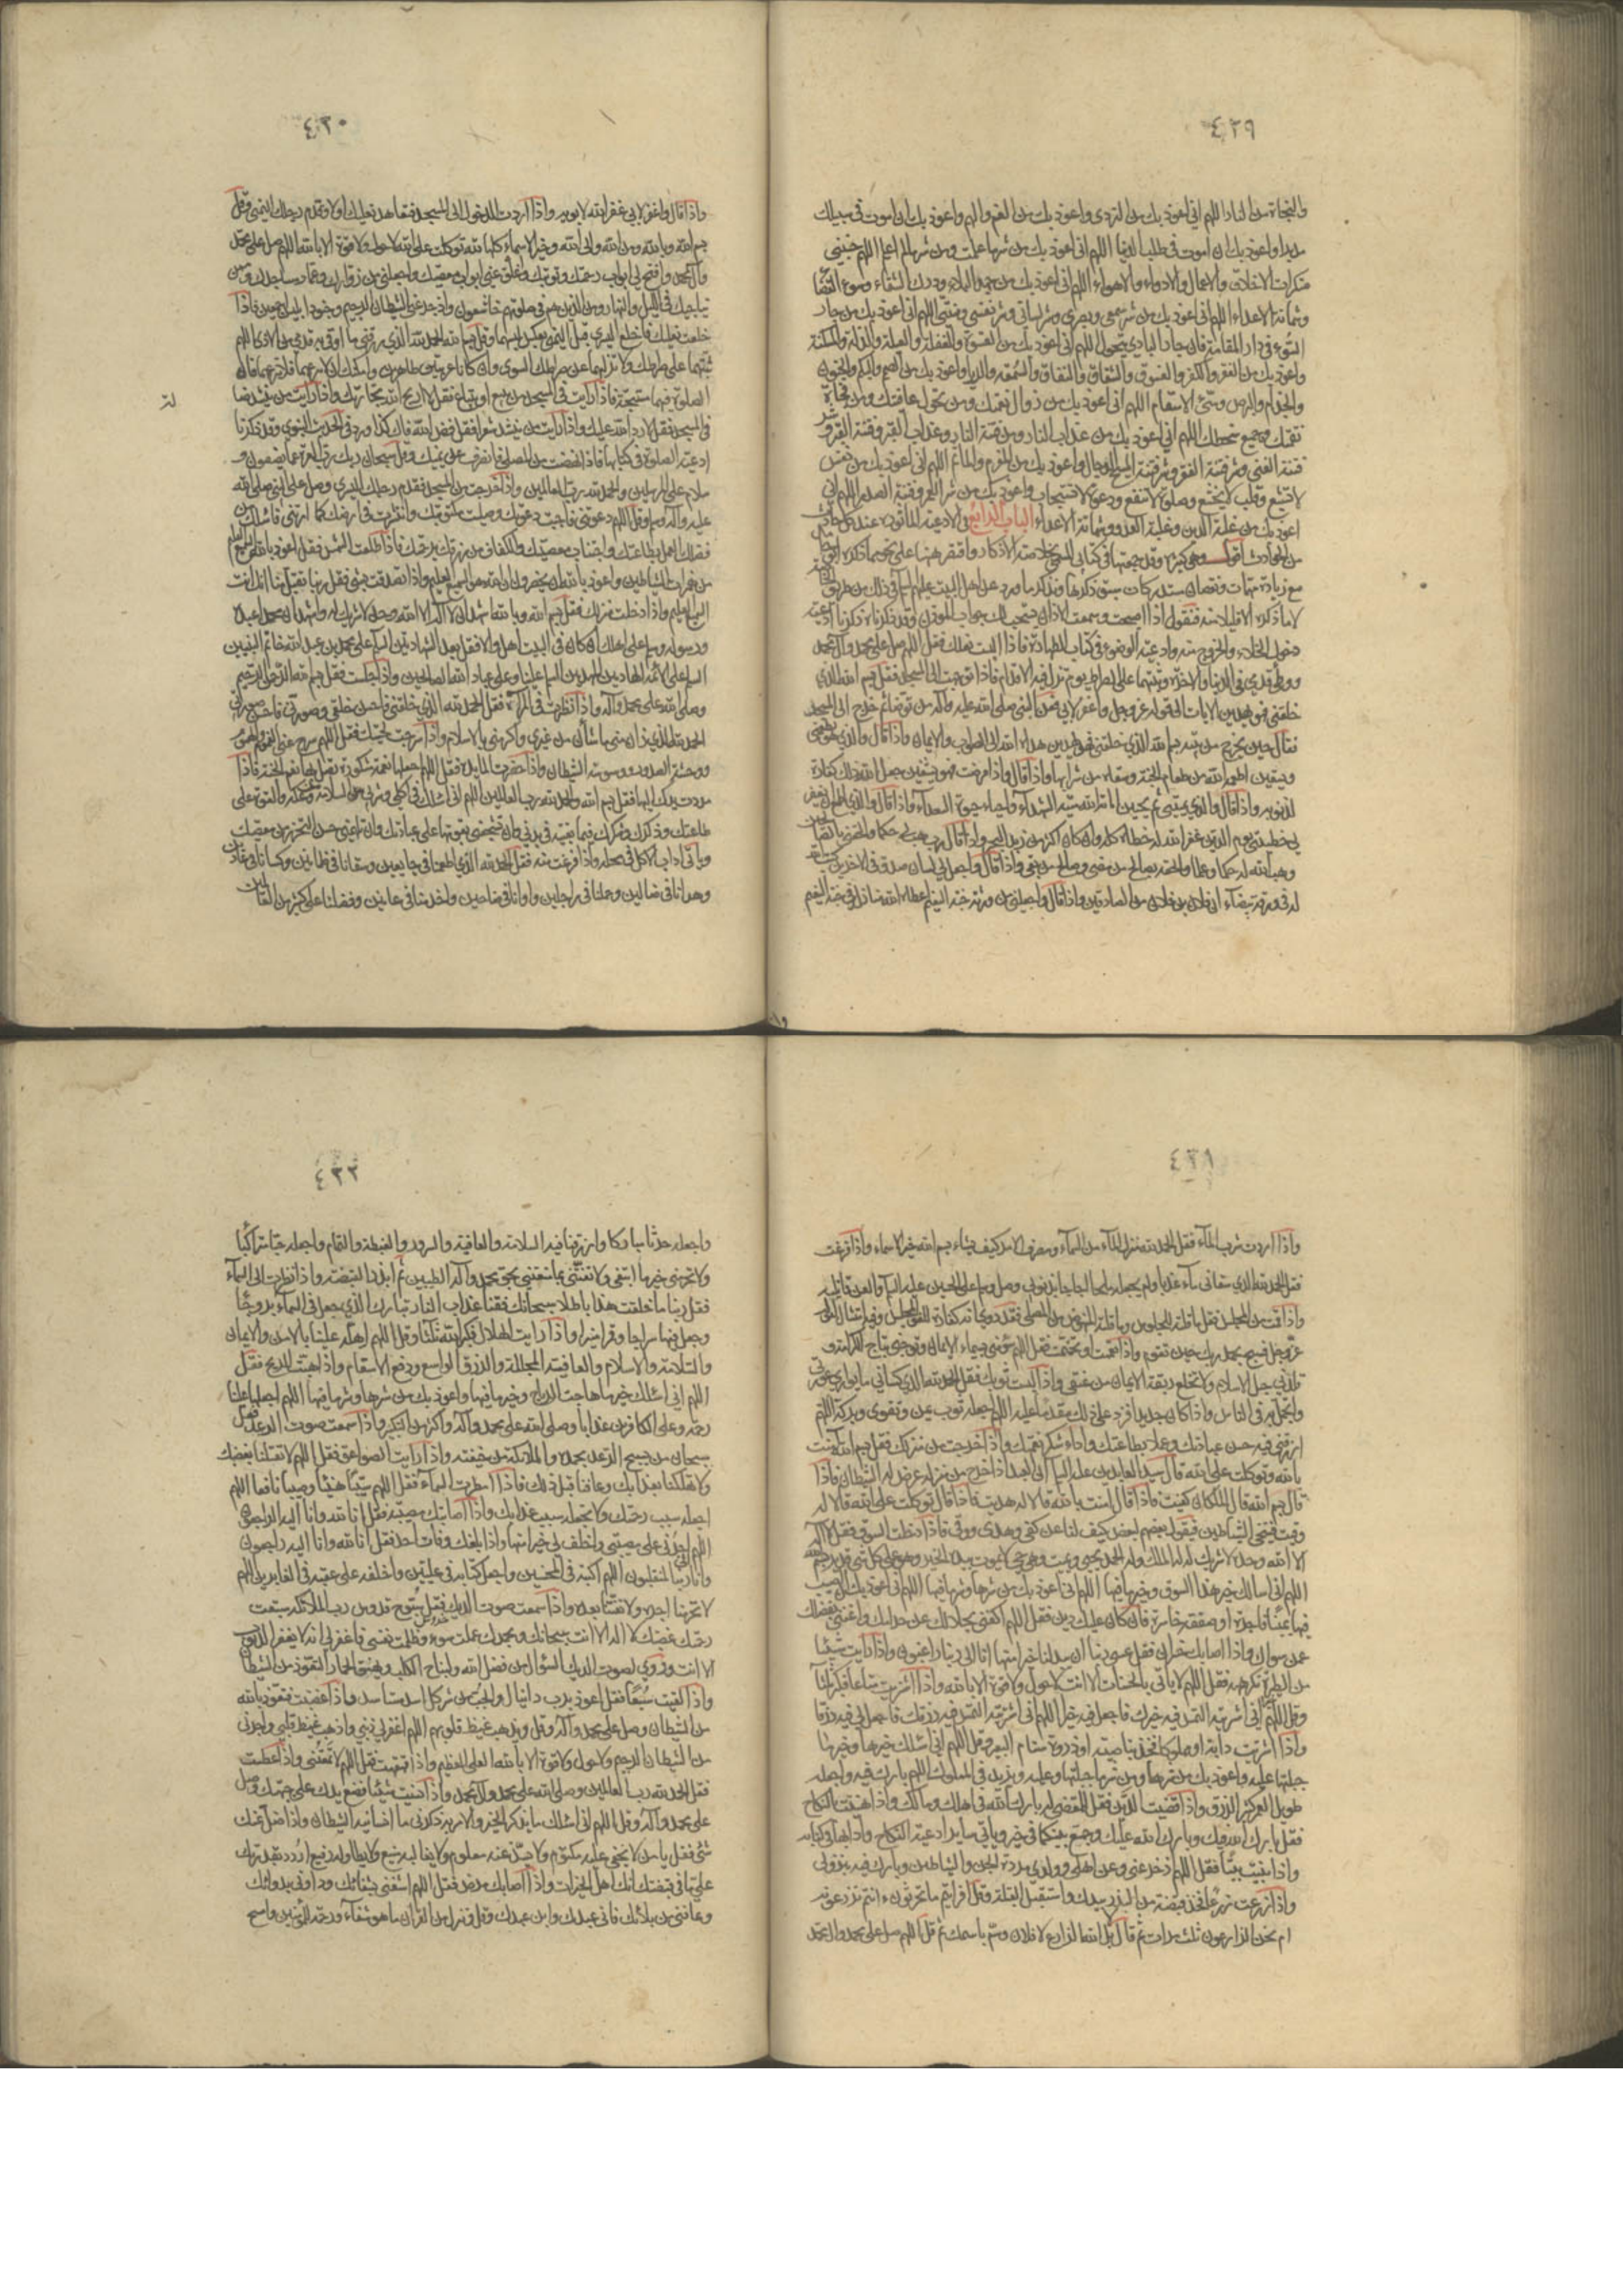 ٤٢٩
والنجاة من النار اللهم اني اعوذ بك من التردي واعوذ بك من الغم والهم واعوذ بك ان اموت في سبيلك
مدبرا واعوذ بك ان اموت في طلب الدنيا اللهم اني اعوذ بك من شر ما علمت ومن شر ما لم اعلم اللهم جنبني
منكرات الاخلاق والاعمال والادواء والاهواء اللهم اني اعوذ بك من جهد البلاء ودرك الشقاء وسوء القضا
وشماتة الاعداء اللهم اني اعوذ بك من شر سمعي وبصري وشر لساني وشر نفسي ومنيتي اللهم اني اعوذ بك من جار
السوء في دار المقامة فان جار البادي يتحول اللهم اني اعوذ بك من القسوة والغفلة والعيلة والذلة والمسكنة
واعوذ بك من الفقر والكفر والفسوق والشقاق والنفاق والسمعة والرياء واعوذ بك من الصمم والبكم والجنون
والجذام والبرص وسيئ الاسقام اللهم اني اعوذ بك من زوال نعمتك ومن تحول عافيتك ومن فجأة
نقمتك وجميع سخطك اللهم اني اعوذ بك من عذاب النار ومن فتنة النار وعذاب القبر وفتنة القبر وشر
فتنة الغنى وشر فتنة الفقر وشر فتنة المسيح الدجال واعوذ بك من المغرم والمأثم اللهم اني اعوذ بك من نفس
لا تشبع وقلب لا يخشع وصلوة لا تنفع ودعوة لا تستجاب واعوذ بك من شر العمر وفتنة الصدر اللهم اني
اعوذ بك من غلبة الدين وغلبة العدو وشماتة الاعداء الباب الرابع في الادعية الماثورة عند كل حادث
من الحوادث اقول وهي كثيرة وقد جمعتها في كتابي المسمى بخلاصة الاذكار واقتصر ههنا على
مع زيادة مهمات ونقصان ستدركات سبق ذكرها ونذكر ما ورد عن اهل البيت عليهم السلام في ذلك من طريق
لا ما ذكره الا قليلا منه فنقول اذا اصبحت وسمعت الاذان فيستحب لك جواب المؤذن وقد ذكرناه وذكرنا ادعية
دخول الخلاء والخروج منه وادعية الوضوء في كتاب الطهارة فاذا لبست نعلك فقل اللهم صل على محمد وآل محمد
ووطئ قدمي في الدنيا والاخرة وثبتهما على الصراط يوم تزل فيه الاقدام فاذا توجهت الى المسجد فقل بسم الله الذي
خلقني فهو يهدين الايات الى قوله عز وجل واغفر لابي فعن النبي صلى الله عليه وآله من توضأ ثم خرج الى المسجد
فقال حين يخرج من بيته بسم الله الذي خلقني فهو يهدين هداه الله الى الصواب والايمان واذا قال والذي هو يطعمني
ويسقين اطعمه الله من طعام الجنة وسقاه من شرابها واذا قال واذا مرضت فهو يشفين جعل الله ذلك كفارة
لذنوبه واذا قال والذي يميتني ثم يحيين اماته الله ميتة الشهداء واحياه حيوة السعداء واذا قال والذي اطمع ان يغفر
لي خطيئتي يوم الدين غفر الله له خطاه كله وان كان اكثر من زبد البحر واذا قال رب هب لي حكما والحقني بالصالحين
وهب الله له حكما وعلما والحقه بصالح من مضى وصالح من بقي واذا قال واجعل لي لسان صدق في الاخرين كتب الله
له في ورقة بيضاء ان فلان بن فلان من الصادقين واذا قال واجعلني من ورثة جنة النعيم اعطاه الله منازل في جنة النعيم
٤٣٠
واذا قال واغفر لابي غفر الله لابويه واذا اردت الدخول الى المسجد فتعاهد نعليك اولا وقدم رجلك اليمنى وقل
بسم الله وبالله ومن الله والى الله وخير الاسماء كلها لله توكلت على الله لا حول ولا قوة الا بالله اللهم صل على محمد
وآل محمد وافتح لي ابواب رحمتك وتوبتك واغلق عني ابواب معصيتك واجعلني من زوارك وعمار مساجدك وممن
يناجيك في الليل والنهار ومن الذين هم في صلوتهم خاشعون وادحر عني الشيطان الرجيم وجنود ابليس اجمعين فاذا
خلعت نعليك فاخلع اليسرى قبل اليمنى بعكس لبسهما وقل بسم الله الحمد لله الذي رزقني ما اوقي به قدمي من الاذى اللهم
ثبتهما على صراطك ولا تزلهما عن صراطك السوي وان كانا عربيتين طاهرين وامكنك ان لا تنزعهما فلا تنزعهما فان
الصلوة فيهما مستحبة فاذا رايت في المسجد من يبيع او يبتاع فقل لا اربح الله تجارتك واذا رايت من ينشد ضالة
في المسجد فقل لا رد الله عليك واذا رايت من ينشد شعرا فقل فض الله فاك كذا ورد في الحديث النبوي وقد ذكرنا
ادعية الصلوة في كتابها فاذا نهضت من المصلى فانصرف على يمينك وقل سبحان ربك رب العزة عما يصفون و
سلام على المرسلين والحمد لله رب العالمين واذا خرجت من المسجد فقدم رجلك اليسرى وصل على النبي صلى الله
عليه وآله وسلم وقل اللهم دعوتني فاجبت دعوتك وصليت مكتوبتك وانتشرت في ارضك كما امرتني فاسئلك من
فضلك العمل بطاعتك واجتناب معصيتك والكفاف من رزقك برحمتك فاذا طلعت الشمس فقل اعوذ بالله السميع العليم
من همزات الشياطين واعوذ بالله ان يحضرون ان الله هو السميع العليم واذا تصدقت بشئ فقل ربنا تقبل منا انك انت
السميع العليم واذا دخلت منزلك فقل بسم الله وبالله اشهد ان لا آله الا الله وحده لا شريك له واشهد ان محمدا عبده
ورسوله وسلم على اهلك ان كان في البيت اهل والا فقل بعد الشهادتين السلام على محمد بن عبد الله خاتم النبيين
السلام على الائمة الهادين المهديين السلام علينا وعلى عباد الله الصالحين واذا جلست فقل بسم الله الرحمن الرحيم
وصلى الله على محمد وآله واذا نظرت في المرآة فقل الحمد لله الذي خلقني فاحسن خلقي وصورني فاحسن صورتي
الحمد لله الذي زان مني ما شان من غيري واكرمني بالاسلام واذا سرحت لحيتك فقل اللهم سرح عني الهموم والغموم
ووحشة الصدور ووسوسة الشيطان واذا حضرت المائدة فقل اللهم اجعلها نعمة مشكورة تصل بها نعيم الجنة فاذا
مددت يدك اليها فقل بسم الله والحمد لله رب العالمين اللهم اني اسئلك في اكلي وشربي من السلامة من وعكه والقوة على
طاعتك وذكرك وشكرك فيما بقيته في بدني وان تشجعني بقوتها على عبادتك وان تلهمني حسن التحرز من معصيتك
وياتي اداب الاكل في محله واذا فرغت منه فقل الحمد لله الذي اطعمنا في جائعين وسقانا في ظمائين وكسانا في عارين
وهدانا في ضالين وحملنا في راجلين واوانا في ضاحين واخدمنا في عانين وفضلنا على كثير من العالمين
٤٣١
واذا اردت شرب الماء فقل الحمد لله منزل الماء من السماء ومصرف الامر كيف يشاء بسم الله خير الاسماء واذا فرغت
فقل الحمد لله الذي سقاني ماء عذبا ولم يجعله ملحا اجاجا بذنوبي وصل وسلم على الحسين عليه السلام والعن قاتليه
واذا قمت من المجلس فقل ما قلته للجلوس وما قلته للنهوض من المصلى فقد روي انه كفارة للغو المجلس وفيه امتثال لقوله
عز وجل فسبح بحمد ربك حين تقوم واذا تعممت او تختمت فقل اللهم سومني بسيماء الايمان وتوجني بتاج الكرامة و
قلدني حبل الاسلام ولا تخلع ربقة الايمان من عنقي واذا لبست ثوبك فقل الحمد لله الذي كساني ما يواري عورتي
واتجمل به في الناس واذا كان جديدا فزد على ذلك مقدما عليه اللهم اجعله ثوب يمن وتقوى وبركة اللهم
ارزقني فيه حسن عبادتك وعملا بطاعتك واداء شكر نعمتك واذا خرجت من منزلك فقل بسم الله آمنت
بالله وتوكلت على الله قال سيد العابدين عليه السلام ان العبد اذا خرج من منزله عرض له الشيطان فاذا
قال بسم الله قال الملكان كفيت فاذا قال آمنت بالله قالا له هديت فاذا قال توكلت على الله قالا له
وقيت فيتنحى الشياطين فيقول بعضهم لبعض كيف لنا بمن كفي وهدي ووقي فاذا دخلت السوق فقل لا آله
الا الله وحده لا شريك له له الملك وله الحمد يحيي ويميت وهو حي لا يموت بيده الخير وهو على كل شئ قدير بسم الله
اللهم اني اسالك خير هذا السوق وخير ما فيها اللهم اني اعوذ بك من شرها وشر ما فيها اللهم اني اعوذ بك ان اصيب
فيها يمينا فاجرة او صفقة خاسرة فان كان عليك دين فقل اللهم اكفني بحلالك عن حرامك واغنني بفضلك
عمن سواك واذا اصابك خسران فقل عسى ربنا ان يبدلنا خيرا منها انا الى ربنا راغبون واذا رايت شيئا
من الطيرة تكرهه فقل اللهم لا ياتي بالحسنات الا انت لا حول ولا قوة الا بالله واذا اشتريت متاعا فكبر ثلثا
وقل اللهم اني اشتريته التمس فيه خيرك فاجعل فيه خيرا اللهم اني اشتريته التمس فيه رزقك فاجعل لي فيه رزقا
واذا اشتريت دابة او مملوكا فخذ بناصيته او ذروة سنام البعير وقل اللهم اني اسئلك خيرها وخير ما
جبلتها عليه واعوذ بك من شرها ومن شر ما جبلتها عليه ويزيد في المملوك اللهم بارك فيه واجعله
طويل العمر كثير الرزق واذا قضيت الدين فقل للمقضي له بارك الله في اهلك ومالك واذا هنيت بالنكاح
فقل بارك الله فيك وبارك الله عليك وجمع بينكما في خير وياتي سائر ادعية النكاح وادابها في كتابه
واذا بنيت بيتا فقل اللهم ادحر عني وعن اهلي وولدي مردة الجن والشياطين وبارك فيه بنزولي
واذا زرعت زرعا فخذ قبضة من البذر بيدك واستقبل القبلة وقل افرايتم ما تحرثون ءانتم تزرعونه
ام نحن الزارعون ثلث مرات ثم قال بل الله الزارع لا فلان وسم باسمك ثم قل اللهم صل على محمد وال محمد
٤٣٢
واجعله حرثا مباركا وارزقنا فيه السلامة والعافية والسرور والغبطة والتمام واجعله حبا متراكبا
ولا تحرمني خير ما ابتغي ولا تفتني بما متعتني بحق محمد وآله الطيبين ثم ابذر القبضة واذا نظرت الى السماء
فقل ربنا ما خلقت هذا باطلا سبحانك فقنا عذاب النار تبارك الذي جعل في السماء بروجا
وجعل فيها سراجا وقمرا منيرا واذا رايت الهلال فكبر الله ثلثا وقل اللهم اهله علينا بالامن والايمان
والسلامة والاسلام والعافية المجللة والرزق الواسع ودفع الاسقام واذا هبت الريح فقل
اللهم اني اسئلك خير ما هاجت الرياح وخير ما فيها واعوذ بك من شرها وشر ما فيها اللهم اجعلها علينا
رحمة وعلى الكافرين عذابا وصلى الله على محمد وآله واكثر من التكبير واذا سمعت صوت الرعد فقل
سبحان من يسبح الرعد بحمده والملائكة من خيفته واذا رايت الصواعق فقل اللهم لا تقتلنا بغضبك
ولا تهلكنا بعذابك وعافنا قبل ذلك فاذا امطرت السماء فقل اللهم سيبا هنيئا وصيبا نافعا اللهم
اجعله سبب رحمتك ولا تجعله سبب عذابك واذا اصابتك مصيبة فقل انا لله وانا اليه راجعون
اللهم اجرني على مصيبتي واخلف لي خيرا منها واذا بلغك وفات احد فقل انا لله وانا اليه راجعون
وانا الى ربنا لمنقلبون اللهم اكتبه في المحسنين واجعل كتابه في عليين واخلفه على عقبه في الغابرين اللهم
لا تحرمنا اجره ولا تفتنا بعده واذا سمعت صوت الديك فقل سبوح قدوس رب الملائكة سبقت
رحمتك غضبك لا اله الا انت سبحانك وبحمدك عملت سوء وظلمت نفسي فاغفر لي انه لا يغفر الذنوب
الا انت وروي لصوت الديك السؤال من فضل الله ولنباح الكلب ونهيق الحمار التعوذ من الشيطان
واذا لقيت سبعا فقل اعوذ برب دانيال والجب من شر كل اسد مستاسد واذا غضبت فتعوذ بالله
من الشيطان وصل على محمد وآله وقل ويذهب غيظ قلوبهم اللهم اغفر لي ذنبي واذهب غيظ قلبي واجرني
من الشيطان الرجيم ولا حول ولا قوة الا بالله العلي العظيم واذا قهقهت فقل اللهم لا تمقتني واذا عطست
فقل الحمد لله رب العالمين وصلى الله على محمد وآل محمد واذا نسيت شيئا فضع يدك على جبهتك وصل
على محمد وآله وقل اللهم اني اسئلك يا مذكر الخير والامر به ذكرني ما انسانيه الشيطان واذا ضل عنك
شئ فقل يا من لا يخفى عليه مكتوم ولا يشذ عنه معلوم ولا يغالبه منيع ولا يطاوله رفيع اردد بقدرتك
علي ما في قبضتك انك اهل الخيرات واذا اصابك مرض فقل اللهم اشفني بشفائك وداوني بدوائك
وعافني من بلائك فاني عبدك وابن عبدك وقل وننزل من القرآن ما هو شفاء ورحمة للمؤمنين وامسح